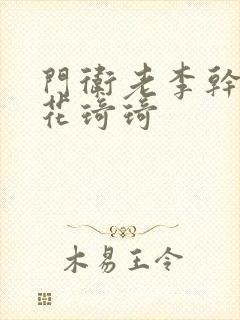 門衛老李幹
花琦琦
木易王令